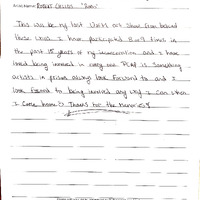 Artist Name: Robert Collins "Rob"
This will be my last Unity art show from behind
these walls. I have participated 8 or 9 times in
the past 15 years of my incarceration and I have
loved being involved in every one. PCAP is something
artists in prison always look forward to and I
look forward to being involved any way I can when
I come home :) Thanks for the memories!